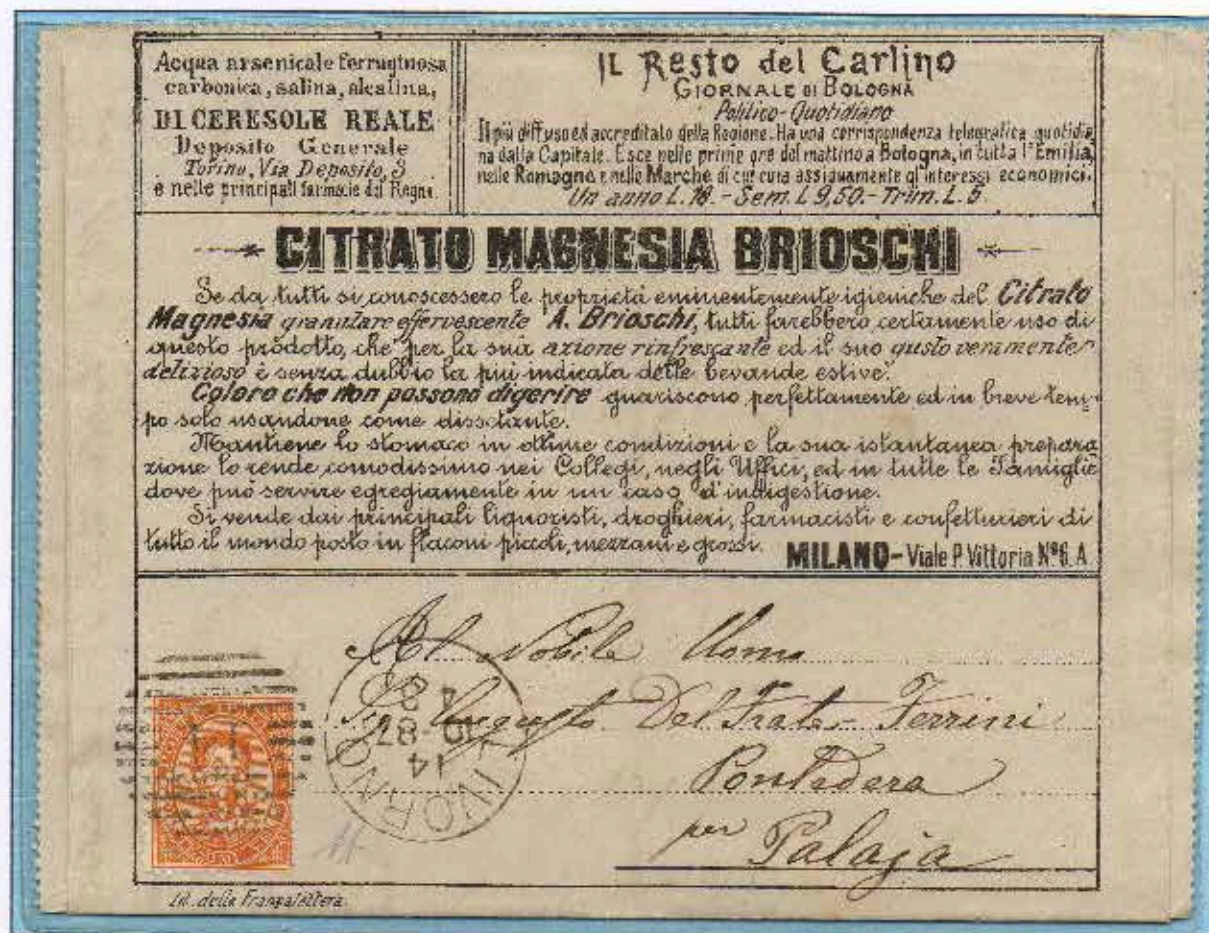 Acqua arsenicale ferruginosa
carbonica, salina, alcalina,
DI CERESOLE REALE
Deposito Generale
Torino, Via Deposito, 3
e nelle principali farmacie del Regno.
IL Resto del Carlino
GIORNALE DI BOLOGNA
Politico-Quotidiano
Il più diffuso ed accreditato della Regione. Ha una corrispondenza telegrafica quotidia
na dalla Capitale. Esce nelle prime ore del mattino a Bologna, in tutta l'Emilia,
nelle Romagne e nelle Marche di cui cura assiduamente gl'interessi economici.
Un anno L. 18. - Sem. L 9,50. - Trim. L. 5
CITRATO MAGNESIA BRIOSCHI
Se da tutti si conoscessero le proprietà eminentemente igieniche del Citrato
Magnesia granulare effervescente A. Brioschi, tutti farebbero certamente uso di
questo prodotto, che per la sua azione rinfrescante ed il suo gusto veramente
delizioso è senza dubbio la più indicata delle bevande estive.
Coloro che non possono digerire guariscono perfettamente ed in breve tem-
po solo usandone come dissetante.
Mantiene lo stomaco in ottime condizioni e la sua istantanea prepara
zione lo rende comodissimo nei Collegi, negli Uffici, ed in tutte le Famiglie
dove può servire egregiamente in un caso d'indigestione.
Si vende dai principali liquoristi, droghieri, farmacisti e confetturieri di
tutto il mondo posto in flaconi piccoli, mezzani e grossi.
MILANO - Viale P. Vittoria Nº 6. A
Al Nobile Uomo
Sig Augusto Del Frate-Ferrini
Pontedera
per Palaja
LIVORNO
14
10-87
Lit. della Francalettera